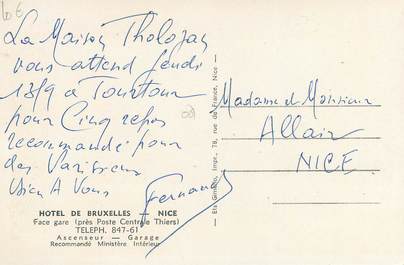 10 €
La Maison Tholozan
vous attend Jeudi
13/9 à Tourtour
pour Cinq repas
recommandé pour
des Varisiens
Bien A Vous
Fernand
HOTEL DE BRUXELLES — NICE
Face gare (près Poste Centrale Thiers)
TELEPH. 847-61
Ascenseur — Garage
Recommandé Ministère Intérieur
Impr., 78, rue de France, Nice —
Madame et Monsieur
Allain
NICE